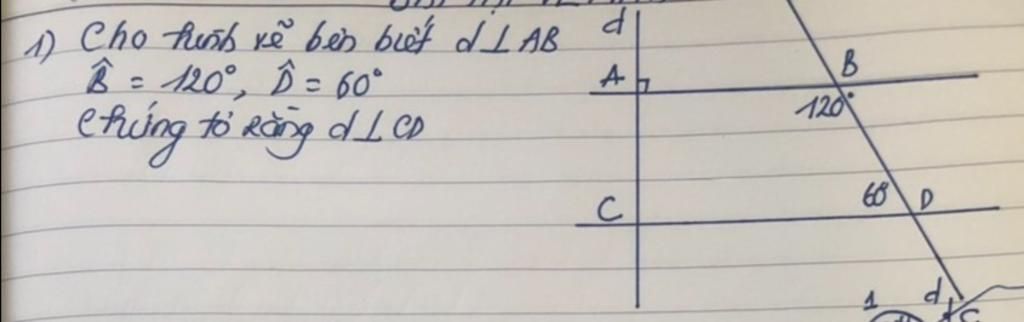 1) Cho hình vẽ bên biết d⊥AB
B̂ = 120°, D̂ = 60°
Chứng tỏ rằng d⊥CD
d
A
B
120°
C
60°
D
1
d